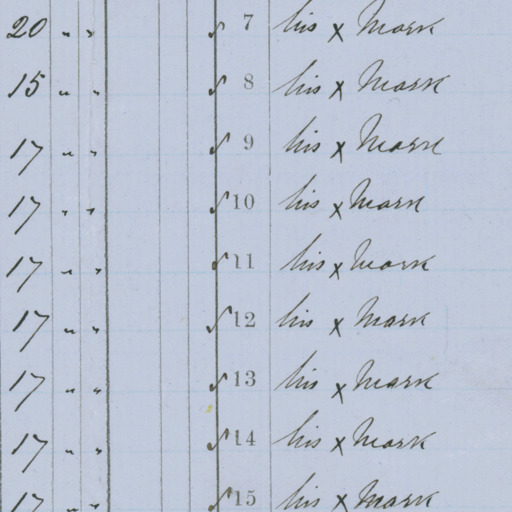 20 " " 7 his x Mark
15 " " 8 his x Mark
17 " " 9 his x Mark
17 " " 10 his x Mark
17 " " 11 his x Mark
17 " " 12 his x Mark
17 " " 13 his x Mark
17 " " 14 his x Mark
17 " " 15 his x Mark